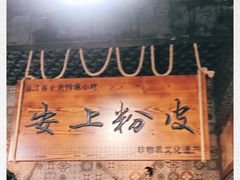 浙江省十大特色小吃
安上粉皮
非物质文化遗产